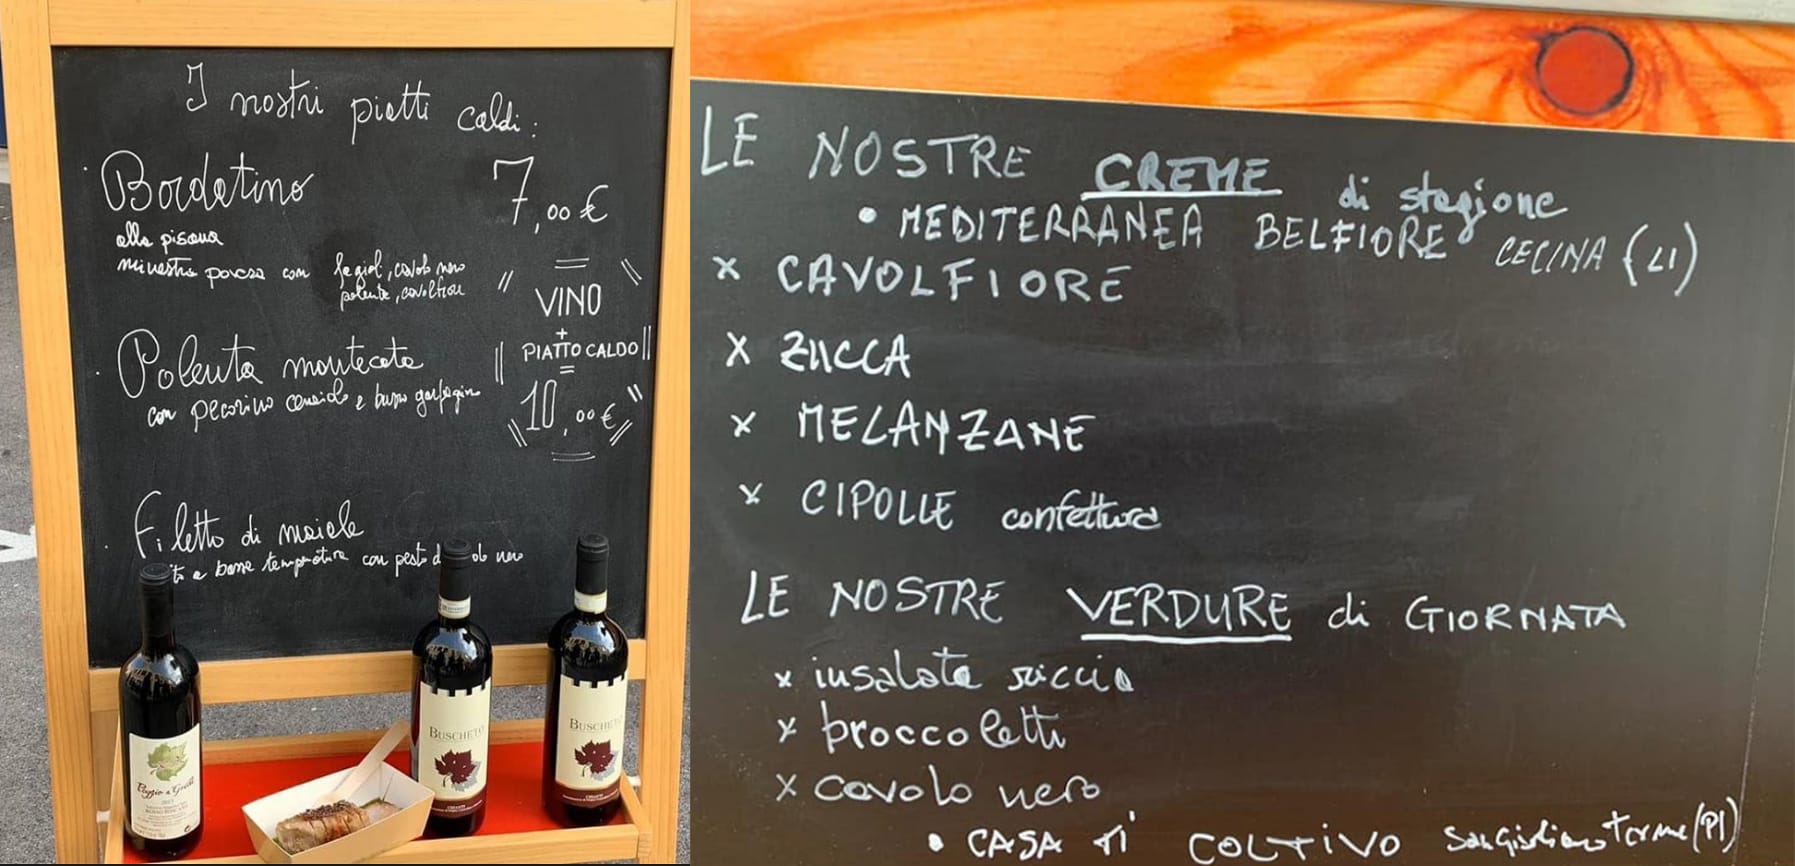 I nostri piatti caldi:
Bordatino 7,00 €
alla pisana
minestra povera con fagioli, cavolo nero
polenta, cavolfiore
VINO
+
PIATTO CALDO
=
10,00 €
Polenta mantecata
con pecorino e burro
Filetto di maiale
a bassa temperatura con pesto nero
BUSCHETO
CHIANTI
BUSCHETO
CHIANTI
Poggio a
LE NOSTRE CREME di stagione
• MEDITERRANEA BELFIORE CECINA (LI)
x CAVOLFIORE
x ZUCCA
x MELANZANE
x CIPOLLE confettura
LE NOSTRE VERDURE di GIORNATA
x insalata riccia
x broccoletti
x cavolo nero
• CASA TI COLTIVO San Giuliano Terme (PI)